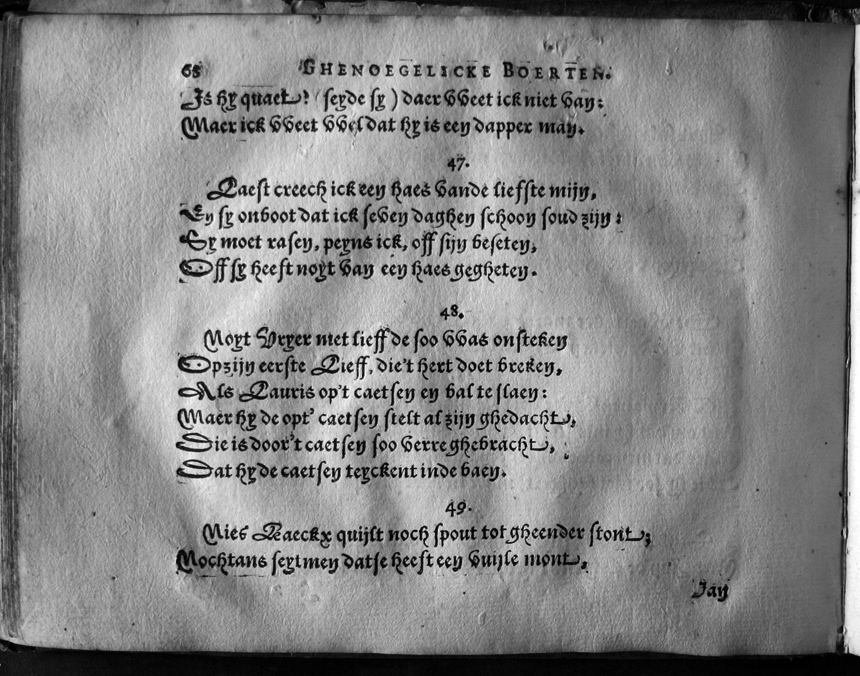 65 GHENOEGELICKE BOERTEN.
Is hy quaet? (seyde sy) daer vveet ick niet van:
Maer ick vveet vvel dat hy is een dapper man.
47.
Laest creech ick een haes vande liefste mijn,
En sy onboot dat ick seven daghen schoon soud zijn:
Sy moet rasen, peyns ick, off sijn beseten,
Off sy heeft noyt van een haes gegheten.
48.
Noyt Vryer met lieff de soo vvas onsteken
Op zijn eerste Lieff, die't hert doet breken,
Als Lauris op't caetsen en bal te slaen:
Maer hy de opt' caetsen stelt al zijn ghedacht,
Die is door't caetsen soo verre ghebracht,
Dat hy de caetsen teyckent inde baen.
49.
Nies Raeckx quijlt noch spout tot gheender stont;
Nochtans seytmen datse heeft een vuyle mont,
Jan